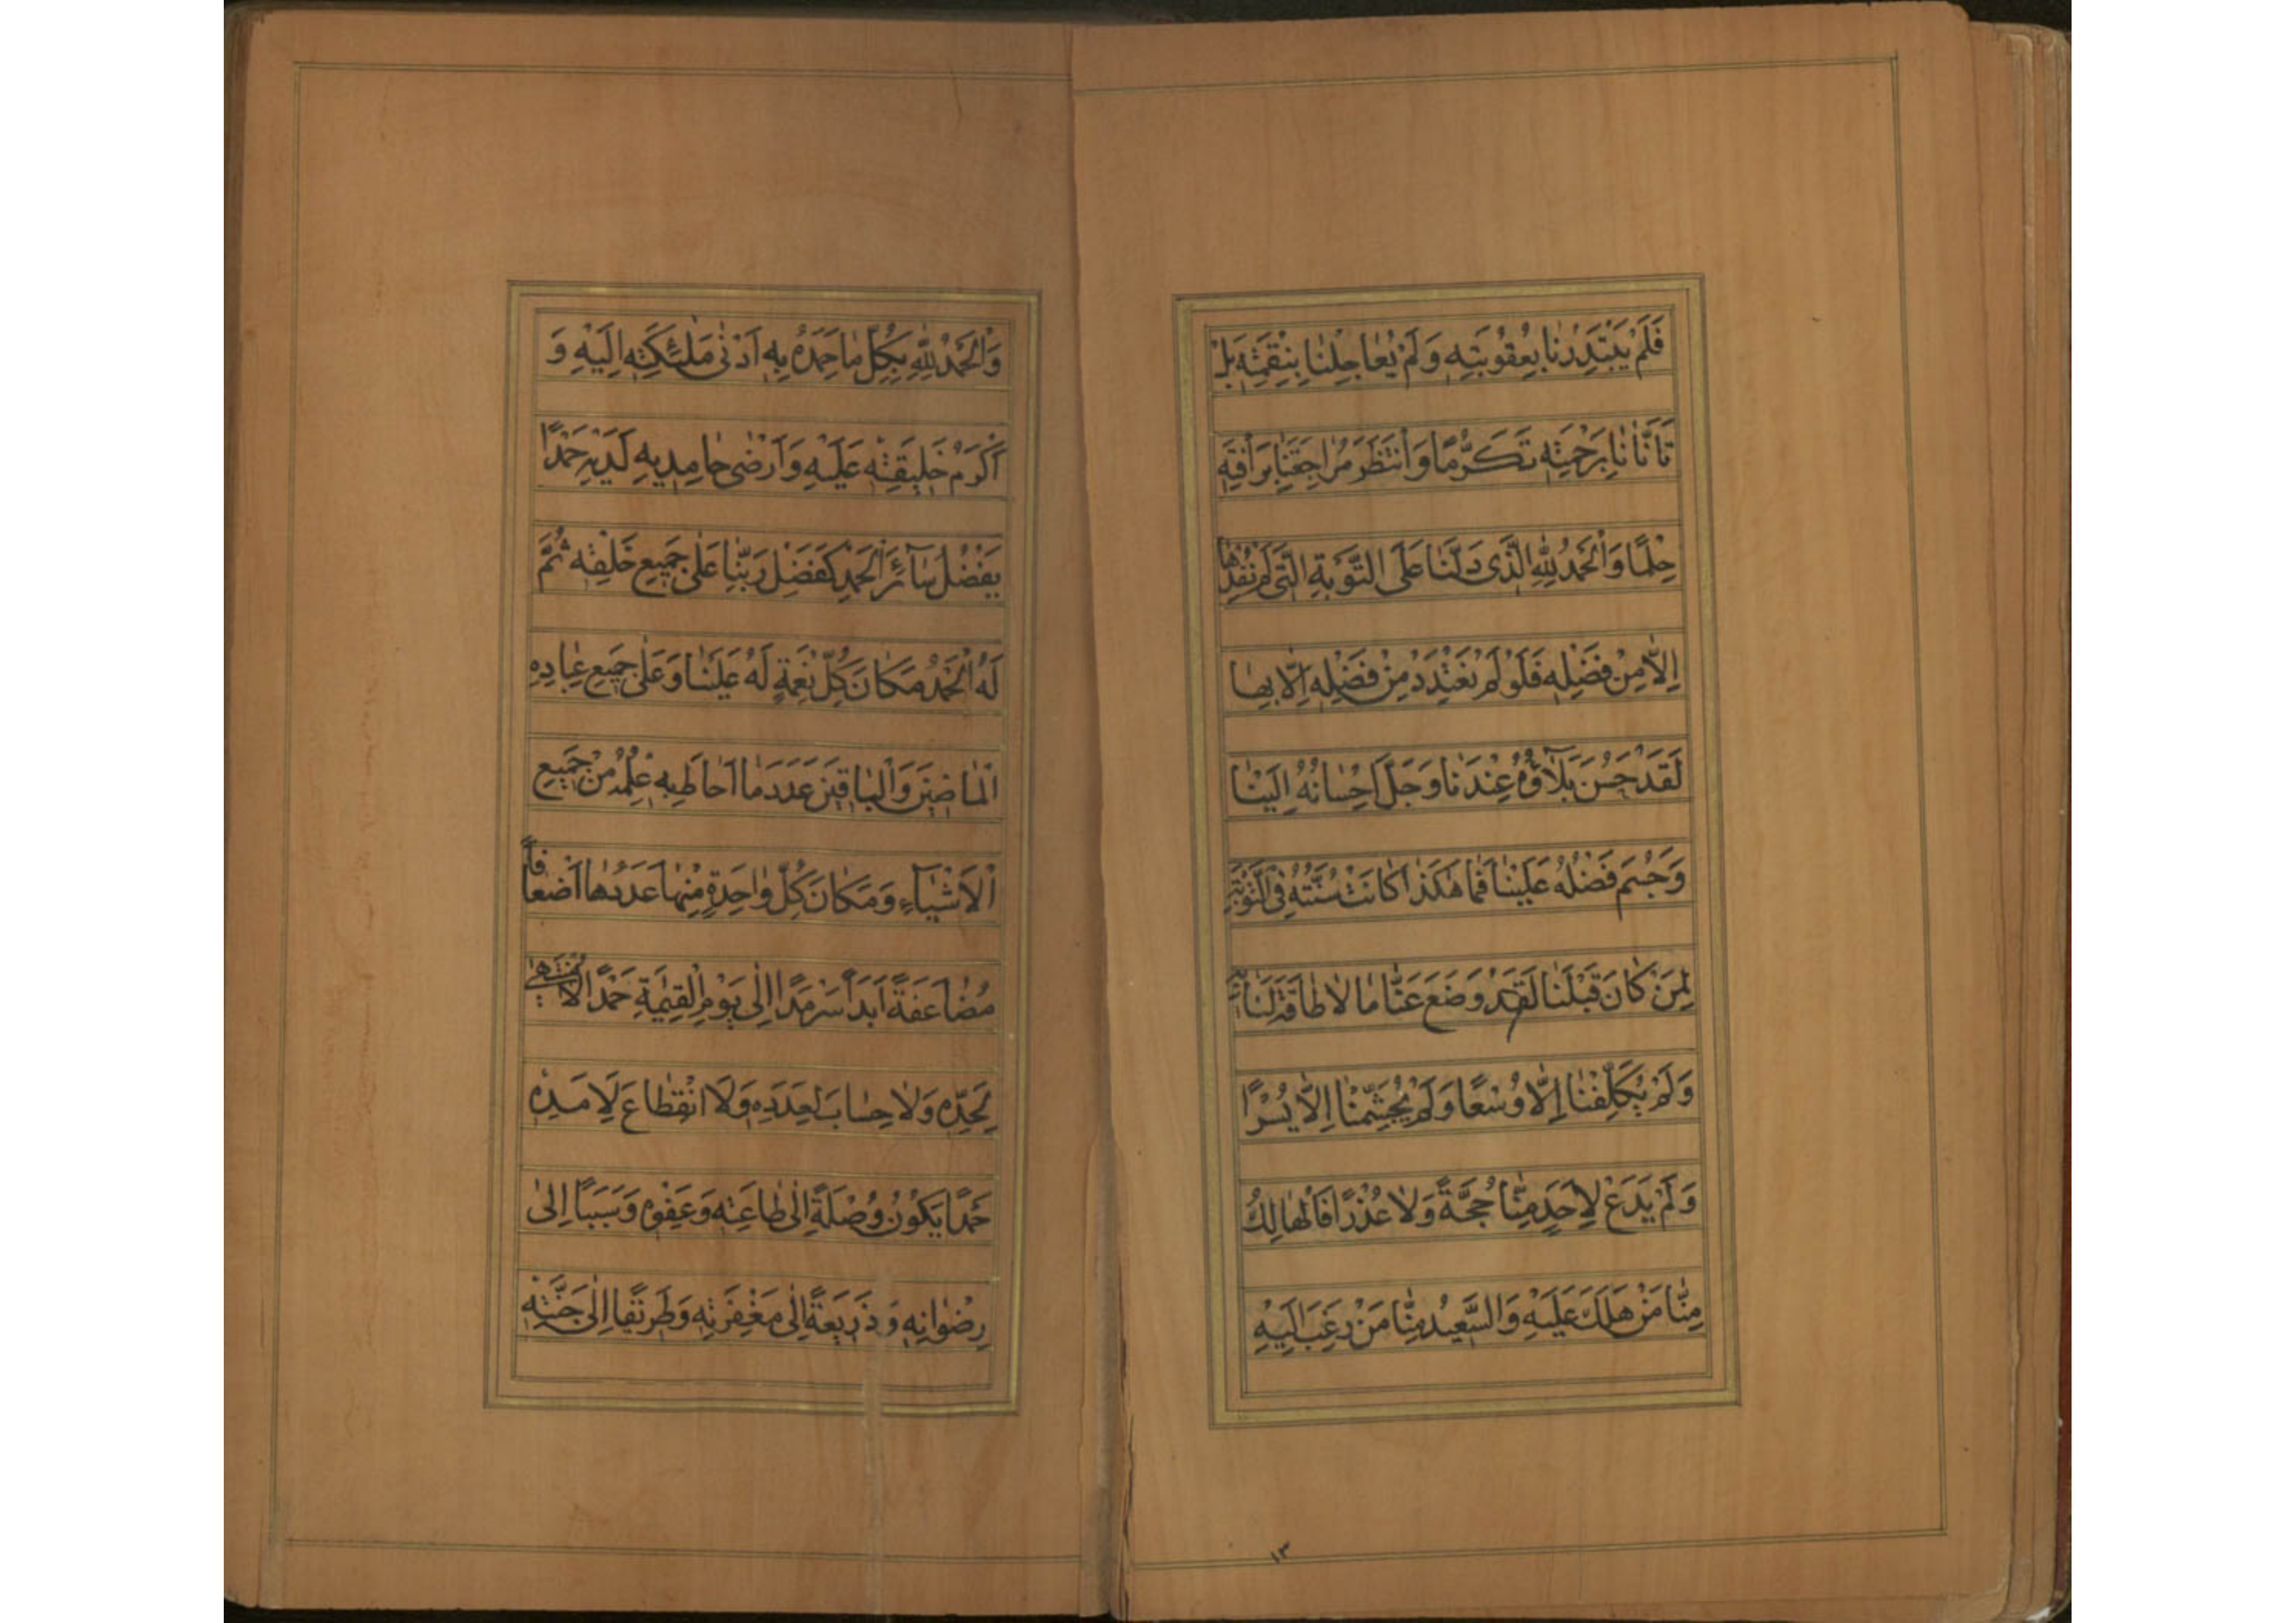 فَلَمْ يَبْتَدِرْنَا بِعُقُوبَتِهِ وَلَمْ يُعَاجِلْنَا بِنِقْمَتِهِ بَلْ
تَاَنَّانَا بِرَحْمَتِهِ تَكَرُّمًا وَانْتَظَرَ مُرَاجِعَتَنَا بِرَاْفَتِهِ
حِلْمًا وَالْحَمْدُ لِلّٰهِ الَّذِى دَلَّنَا عَلَى التَّوْبَةِ الَّتِى لَمْ نُفِدْهَا
اِلَّا مِنْ فَضْلِهِ فَلَوْ لَمْ نَعْتَدِدْ مِنْ فَضْلِهِ اِلَّا بِهَا
لَقَدْ حَسُنَ بَلَآؤُهُ عِنْدَنَا وَجَلَّ اِحْسَانُهُ اِلَيْنَا
وَجَسُمَ فَضْلُهُ عَلَيْنَا فَمَا هٰكَذَا كَانَتْ سُنَّتُهُ فِى التَّوْبَةِ
لِمَنْ كَانَ قَبْلَنَا لَقَدْ وَضَعَ عَنَّا مَا لَا طَاقَةَ لَنَا بِهِ
وَلَمْ يُكَلِّفْنَا اِلَّا وُسْعًا وَلَمْ يُجَشِّمْنَا اِلَّا يُسْرًا
وَلَمْ يَدَعْ لِاَحَدٍ مِنَّا حُجَّةً وَلَا عُذْرًا فَالْهَالِكُ
مِنَّا مَنْ هَلَكَ عَلَيْهِ وَالسَّعِيدُ مِنَّا مَنْ رَغِبَ اِلَيْهِ
١٣
وَالْحَمْدُ لِلّٰهِ بِكُلِّ مَا حَمِدَهُ بِهِ اَدْنٰى مَلٰئِكَتِهِ اِلَيْهِ وَ
اَكْرَمُ خَلِيقَتِهِ عَلَيْهِ وَاَرْضٰى حَامِدِيهِ لَدَيْهِ حَمْدًا
يَفْضُلُ سَآئِرَ الْحَمْدِ كَفَضْلِ رَبِّنَا عَلٰى جَمِيعِ خَلْقِهِ ثُمَّ
لَهُ الْحَمْدُ مَكَانَ كُلِّ نِعْمَةٍ لَهُ عَلَيْنَا وَعَلٰى جَمِيعِ عِبَادِهِ
الْمَاضِينَ وَالْبَاقِينَ عَدَدَ مَا اَحَاطَ بِهِ عِلْمُهُ مِنْ جَمِيعِ
الْاَشْيَآءِ وَمَكَانَ كُلِّ وَاحِدَةٍ مِنْهَا عَدَدُهَا اَضْعَافًا
مُضَاعَفَةً اَبَدًا سَرْمَدًا اِلٰى يَوْمِ الْقِيٰمَةِ حَمْدًا لَا مُنْتَهٰى
لِحَدِّهِ وَلَا حِسَابَ لِعَدَدِهِ وَلَا انْقِطَاعَ لِاَمَدِهِ
حَمْدًا يَكُونُ وُصْلَةً اِلٰى طَاعَتِهِ وَعَفْوِهِ وَسَبَبًا اِلٰى
رِضْوَانِهِ وَذَرِيعَةً اِلٰى مَغْفِرَتِهِ وَطَرِيقًا اِلٰى جَنَّتِهِ